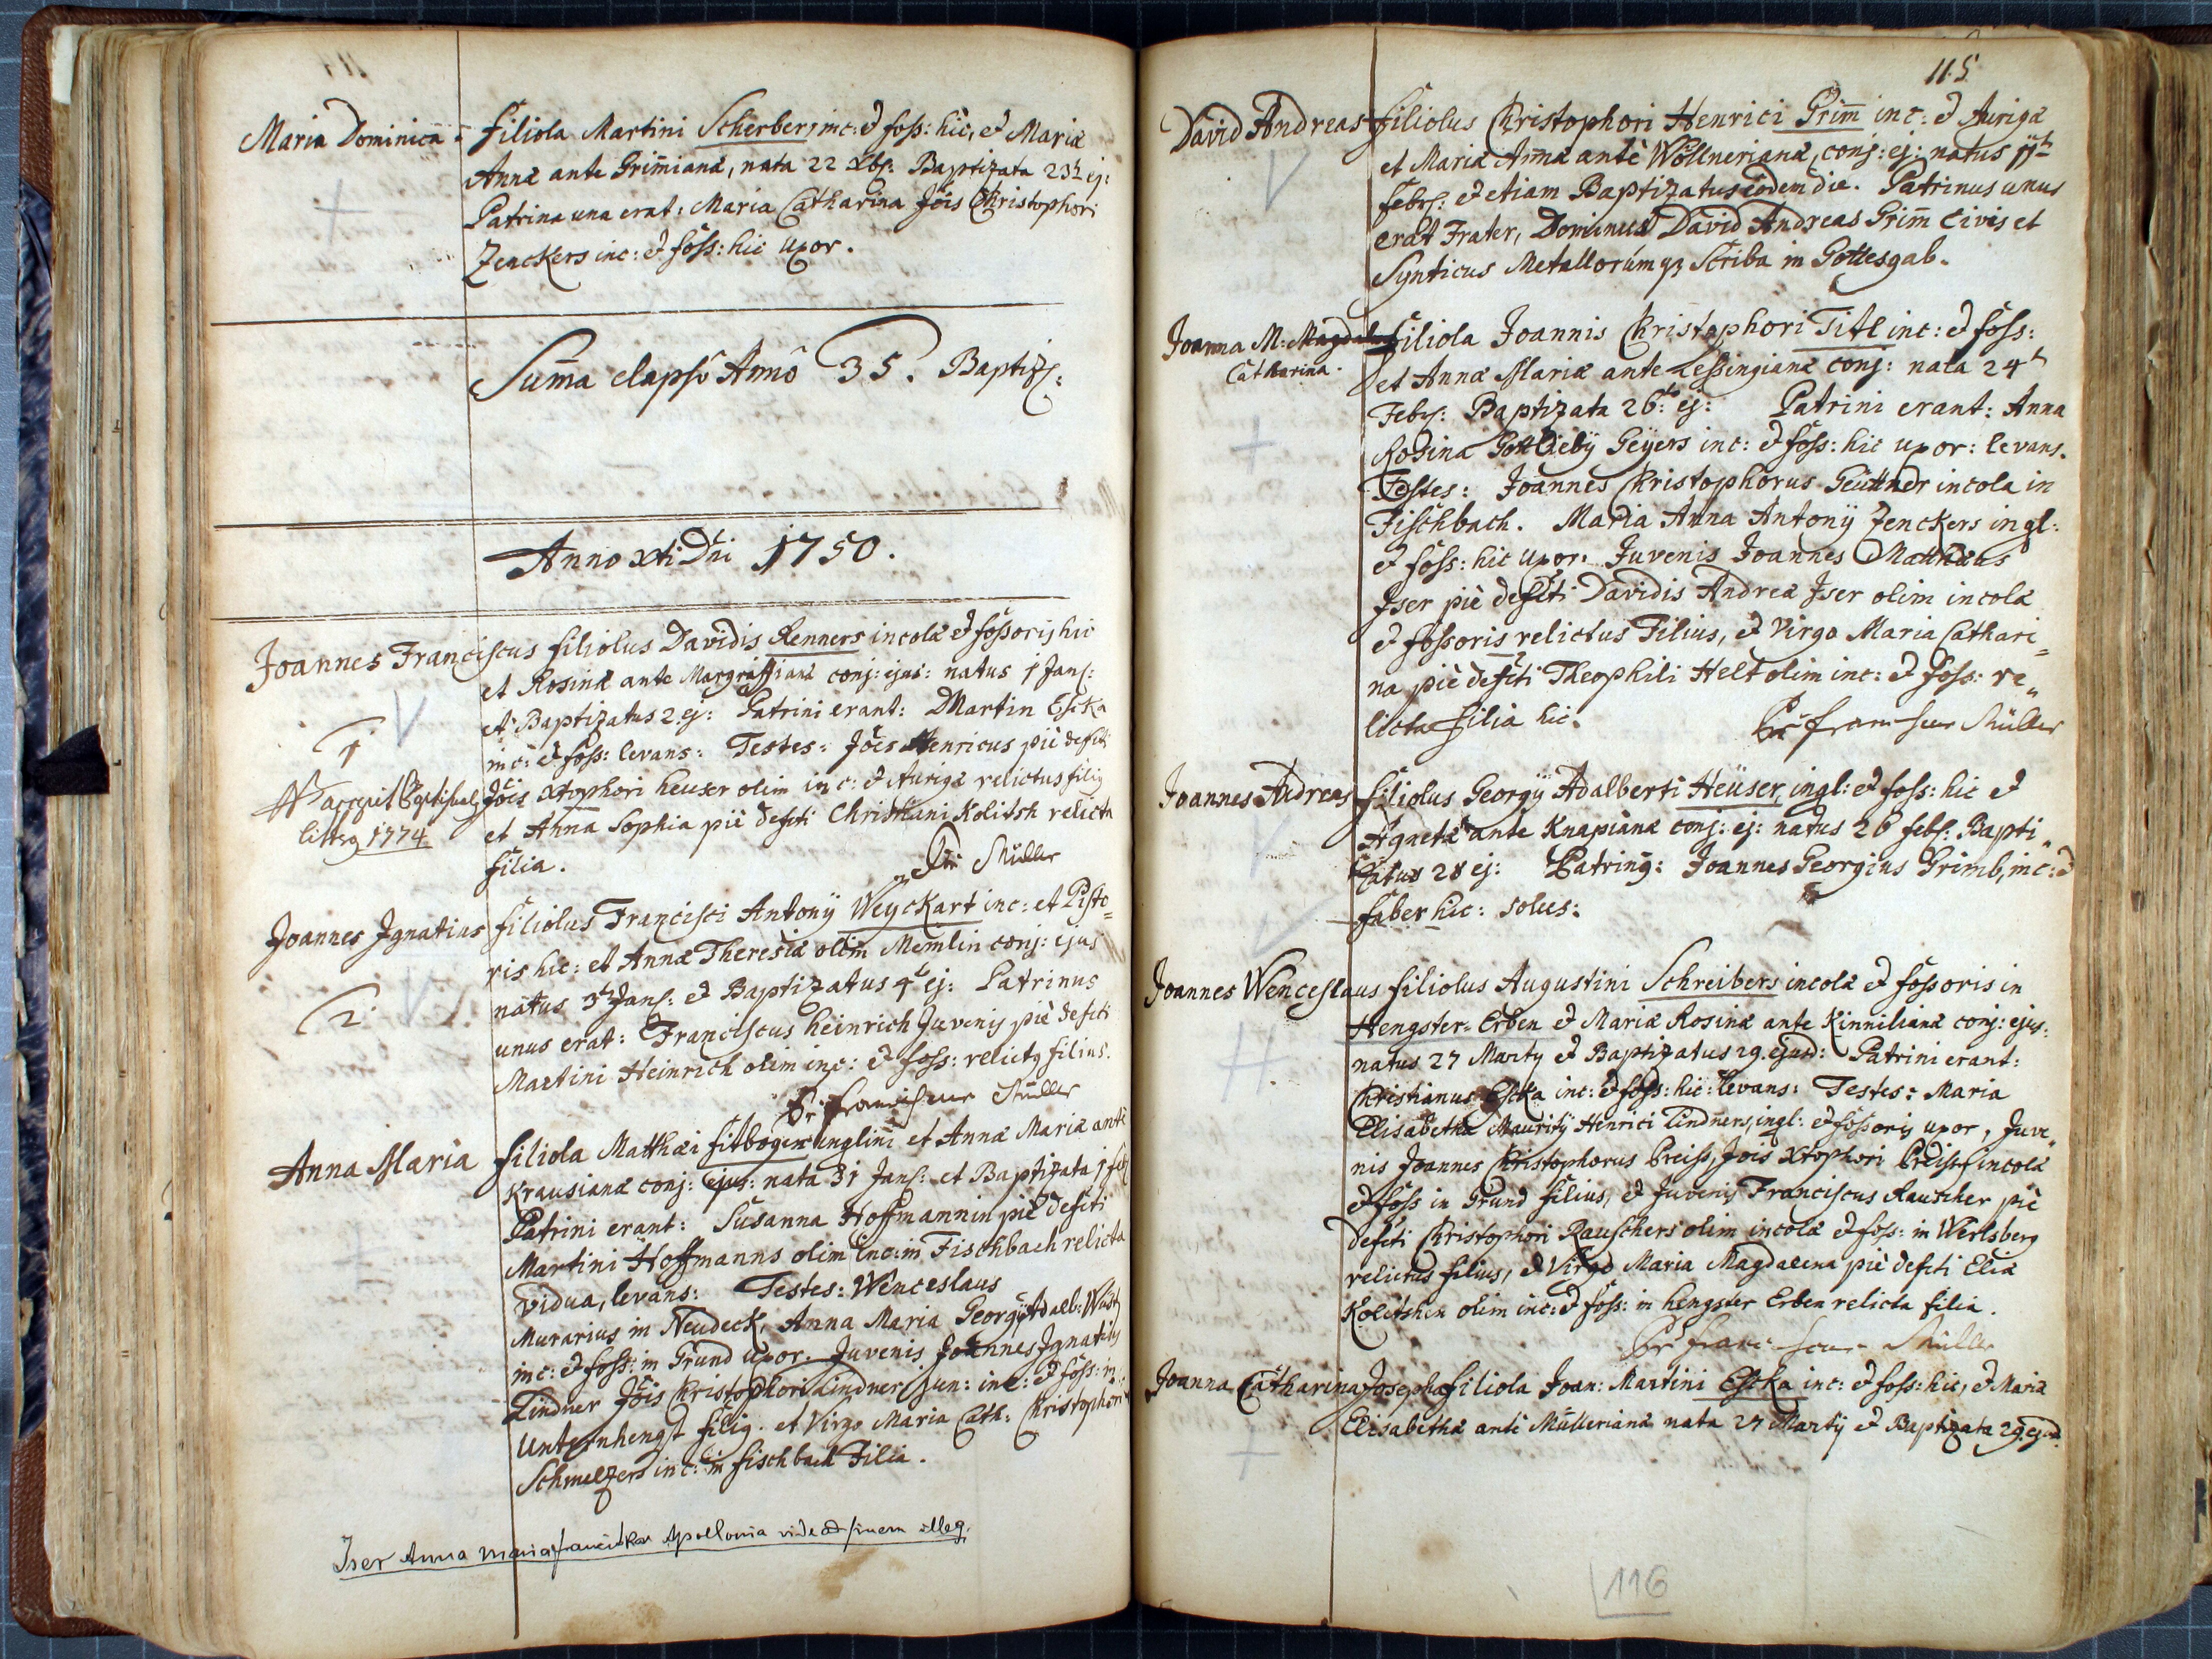 Maria Dominica = filiola Martini Scherbers inc: et foss: hic, et Mariæ
Annæ ante Grim̄ianæ, nata 22 Xbr: Baptizata 23t ej:
Patrina una erat: Maria Catharina Jōis Christophori
Zenckers inc: et foss: hic uxor.
Sum̄a elapsō Annō 35. Baptiz:
Anno Xti Dni 1750.
Joannes Franciscus filiolus Davidis Renners incolæ et fossoris hic
et Rosinæ ante Margraffianæ conj: ejus: natus 1 Janr:
et Baptizatus 2. ej: Patrini erant: Martin Escka
1
inc: et foss: levans: Testes: Jōes Henricus piè defcti
Jōis Xtophori heuser olim inc: et Aurigæ relictus filiq
et Anna Sophia piè defcti Christiani Kolitsh relicta
litteq 1774
filia.
Müller
Joannes Ignatius filiolus Francisci Antonÿ Weyckart inc: et Pisto=
ris hic: et Annæ Theresiæ olim Memlin conj: ejus
natus 3t Janr: et Baptizatus 4t ej: Patrinus
2.
unus erat: Franciscus heinrich Juvenis piè defcti
Martini Heinrich olim inc: et foss: relictq filius.
Pr: Franciscus Müller
Anna Maria filiola Matthæi Sitbogen inglini et Annæ Mariæ antè
Krausianæ conj: ejus: nata 31 Janr: et Baptizata 1 feb:
Patrini erant: Susanna Hoffmannin piè defcti
Martini Hoffmanns olim inc: in Fischbach relicta
vidua, levans: Testes: Wenceslaus
Murarius in Neudeck, Anna Maria Georgÿ Adalb:
inc: et foss: in Grund uxor. Juvenis Joannes Ignatius
Lindner Jōis Christophori Lindner jun: inc: et foss: in
Unternhengst filiq. et Virgo Maria Cath: Christophori
Schmelzers inc: in fischbach Filia.
Iser Anna Maria franciska Apollonia vide ad finem illeg.
115
David Andreas filiolus Christophori Henrici Grim̄ inc: et Aurigæ
et Mariæ Annæ antè Wöllnerianæ, conj: ej: natus 17t
febr: et etiam Baptizatus eodem die. Patrinus unus
erat Frater, Dominus David Andreas Grim̄ Civis et
Synticus Metallorumq3 Scriba in Gottesgab.
Joanna M: Magdalena filiola Joannis Christophori Titl inc: et foss:
Catharina.
et Annæ Mariæ ante Lessingianæ conj: nata 24t
Febr: Baptizata 26t ej: Patrini erant: Anna
Rosina Gottliebÿ Geÿers inc: et foss: hic uxor: levans.
Testes: Joannes Christophorus Geüttner incola in
Fischbach. Maria Anna Antonÿ Zenckers ingl:
et foss: hic uxor. Juvenis Joannes Matthæus
Iser piè defcti Davidis Andreæ Iser olim incolæ
et fossoris relictus Filius, et Virgo Maria Cathari=
na piè defcti Theophili Helt olim inc: et foss: re„
licta filia hic.
Pr Franciscus Müller
Joannes Andreas filiolus Georgÿ Adalberti Heüser, ingl: et foss: hic et
Agnetæ ante Knapianæ conj: ej: natus 26 febr: Bapti„
zatus 28 ej: Patrinq: Joannes Georgius Grimb, inc: et
faber hic: solus:
Joannes Wenceslaus filiolus Augustini Schreibers incolæ et fossoris in
Hengster-Erben et Mariæ Rosinæ ante Kinnilianæ conj: ejus:
natus 27 Martÿ et Baptizatus 29. ejusd: Patrini erant:
Christianus Escka inc: et foss: hic: levans: Testes: Maria
Elisabetha Mauritÿ Henrici Lindners, ingl: et fossoris uxor, Juve„
nis Joannes Christophorus Preiss, Jois Xtophori Preiss incolæ
et foss in Grund filius, et Juvenis Franciscus Rauscher piè
defcti Christophori Rauschers olim incolæ et foss: in Werlsberg
relictus filius, et Virgo Maria Magdalena piè defcti Eliæ
Kolitshen olim inc: et foss: in hengster Erben relicta filia.
Pr Franciscus Müller
Joanna Catharina Josepha filiola Joan: Martini Escka inc: et foss: hic, et Mariæ
Elisabethæ antè Müllerianæ nata 27 Martÿ et Baptizata 29. ejusd.
116